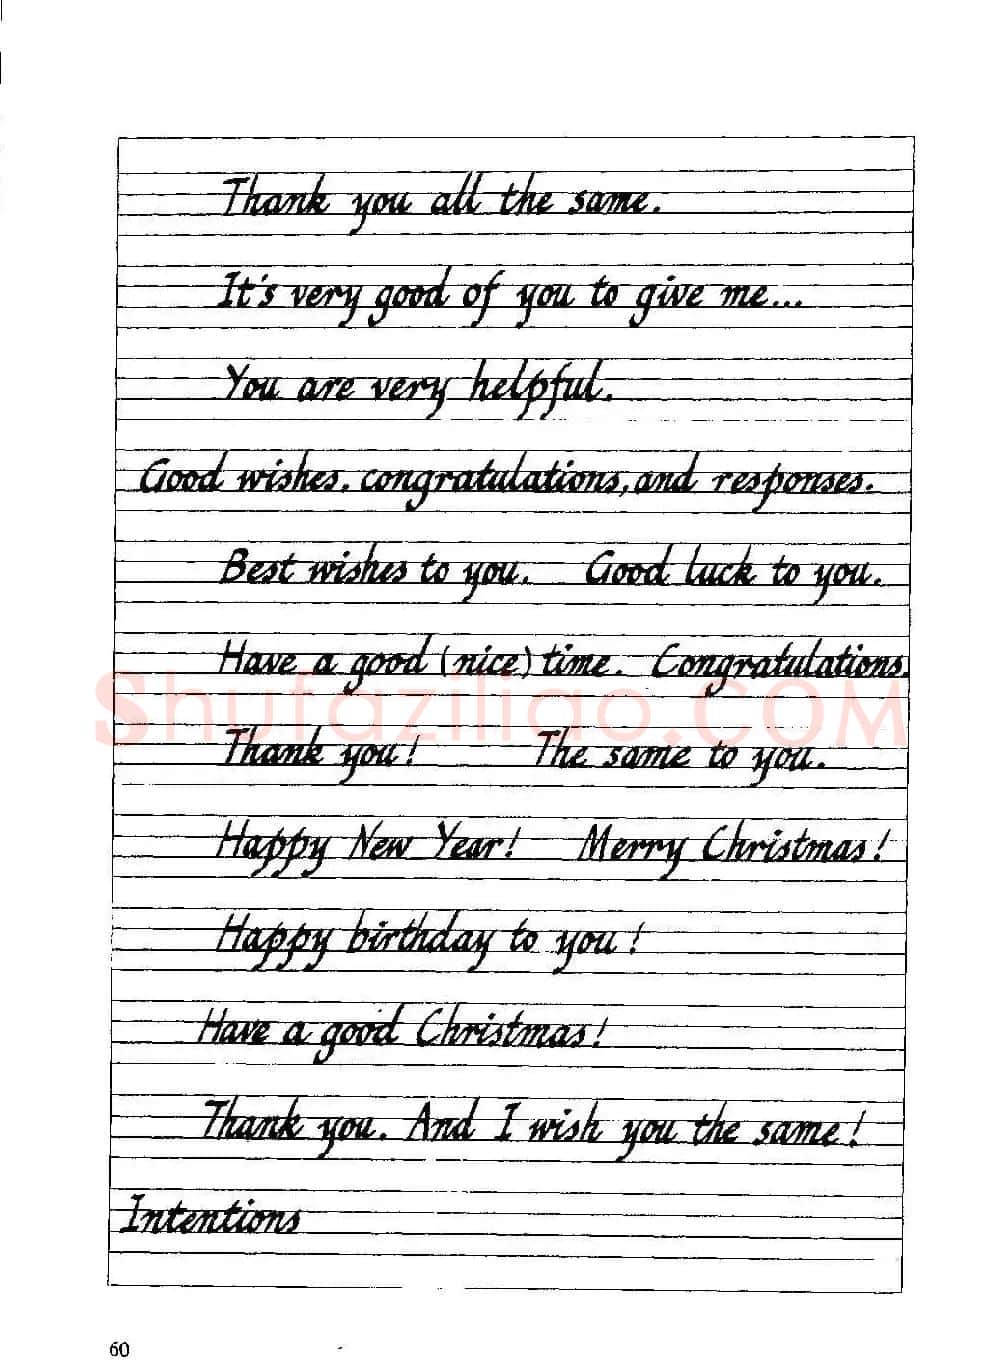 Thank you all the same.
It's very good of you to give me...
You are very helpful.
Good wishes, congratulations, and responses.
Best wishes to you. Good luck to you.
Have a good (nice) time. Congratulations.
Shufaziliao.COM
Thank you! The same to you.
Happy New Year! Merry Christmas!
Happy birthday to you!
Have a good Christmas!
Thank you. And I wish you the same!
Intentions
60